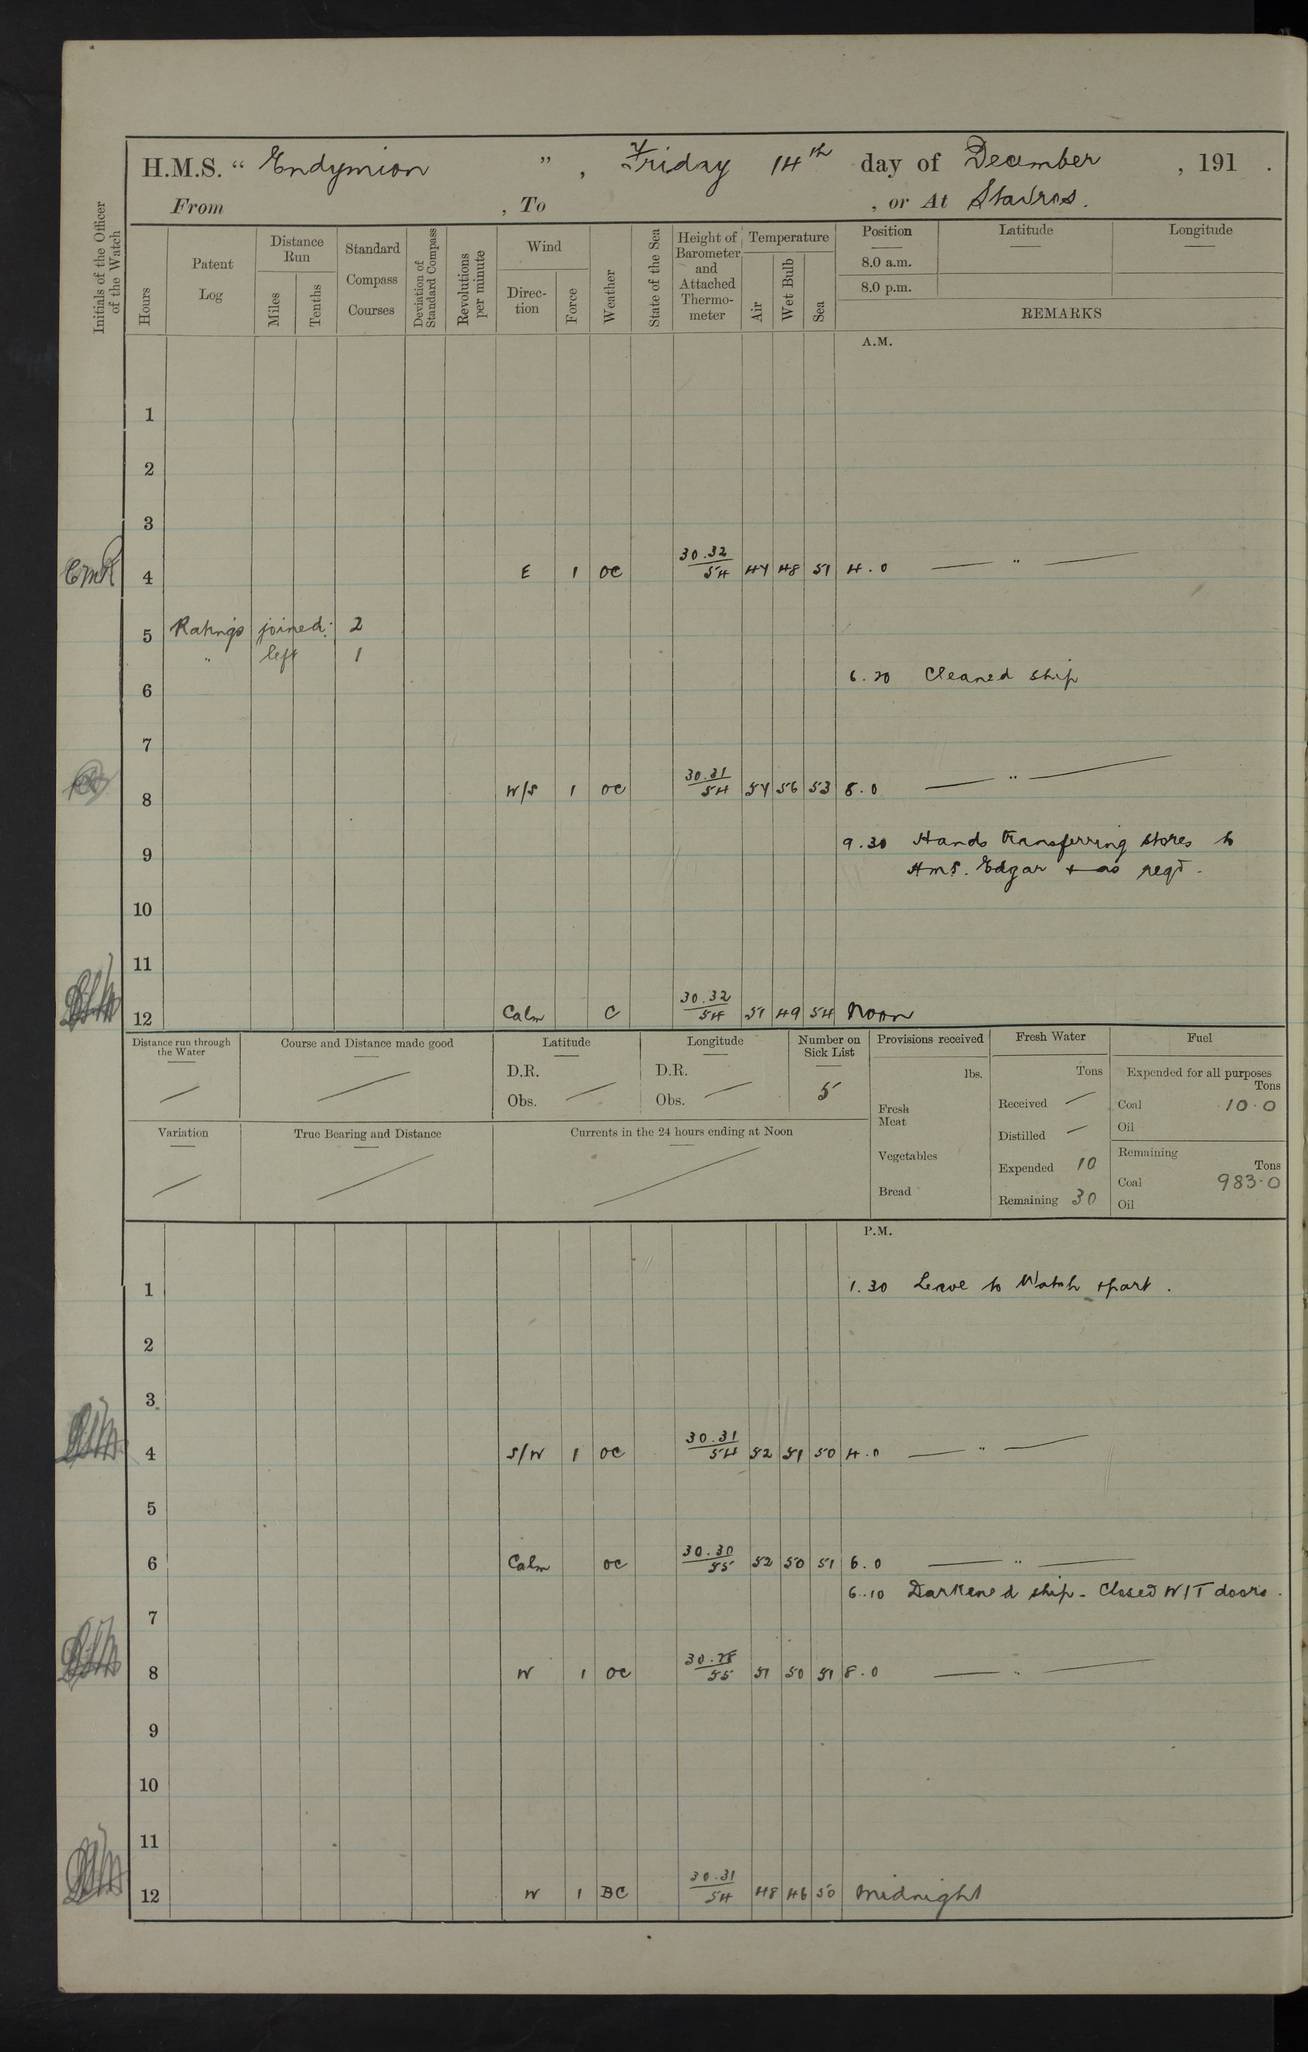 H.M.S. “ Endymion ” , Friday 14th day of December , 191 .
From , To , or At Stavros.
Initials of the Officer of the Watch
Hours
Patent Log
Distance Run
Miles
Tenths
Standard Compass Courses
Deviation of Standard Compass
Revolutions per minute
Wind
Direction
Force
Weather
State of the Sea
Height of Barometer and Attached Thermometer
Temperature
Air
Wet Bulb
Sea
Position
8.0 a.m.
8.0 p.m.
Latitude
Longitude
REMARKS
A.M.
1
2
3
4 E 1 OC 30.32/54 48 51 4.0 — " —
5 Ratings joined: 2
" left 1
6.20 Cleaned ship
6
7
8 W/S 1 OC 30.31/54 56 53 8.0 — " —
9.30 Hands transferring stores to
9
HMS. Edgar + as reqd.
10
11
12 Calm C 30.32/54 51 49 54 Noon
Distance run through the Water
Course and Distance made good
Latitude
D.R.
Obs.
Longitude
D.R.
Obs.
Number on Sick List
5
Provisions received
lbs.
Fresh Meat
Vegetables
Bread
Fresh Water
Tons
Received
Distilled
Expended 10
Remaining 30
Fuel
Expended for all purposes
Tons
Coal 10.0
Oil
Remaining
Tons
Coal 983.0
Oil
Variation
True Bearing and Distance
Currents in the 24 hours ending at Noon
P.M.
1 1.30 Leave to Watch + part.
2
3
4 S/W 1 OC 30.31/54 52 51 50 4.0 — " —
5
6 Calm OC 30.30/55 52 50 51 6.0 — " —
6.10 Darkened ship - Closed W/T doors.
7
8 W 1 OC 30.28/55 51 50 51 8.0 — " —
9
10
11
12 W 1 BC 30.31/54 48 46 50 Midnight